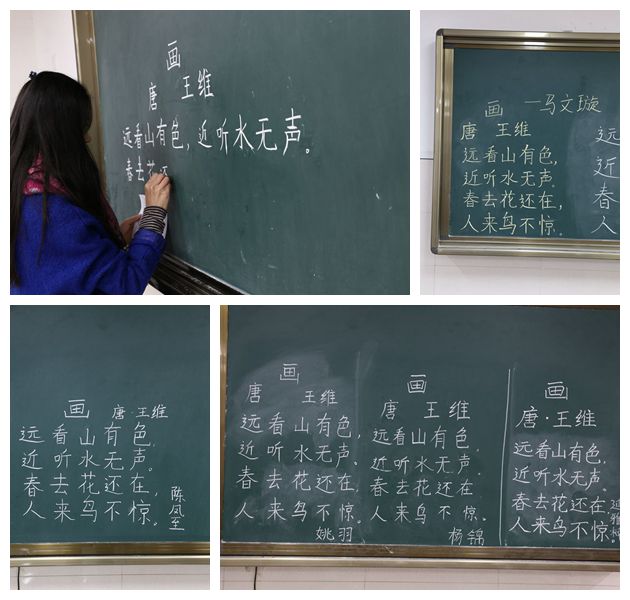 画
唐 王维
远看山有色，近听水无声。
春去花还
画 一马文璇
唐 王维
远看山有色，
近听水无声。
春去花还在，
人来鸟不惊。
远
近
春
人
画 唐·王维
远看山有色，
近听水无声。
春去花还在，
人来鸟不惊。
陈凤至
画
唐 王维
远看山有色，
近听水无声。
春去花还在，
人来鸟不惊。
姚羽
画
唐 王维
远看山有色，
近听水无声。
春去花还在，
人来鸟不惊。
杨锦
画
唐·王维
远看山有色，
近听水无声。
春去花还在，
人来鸟不惊。